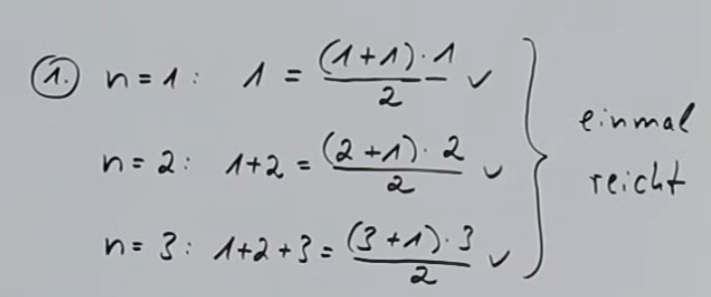 1. n = 1 : 1 = (1+1)·1 / 2 ✓
n = 2 : 1+2 = (2+1)·2 / 2 ✓
n = 3 : 1+2+3 = (3+1)·3 / 2 ✓
einmal
reicht